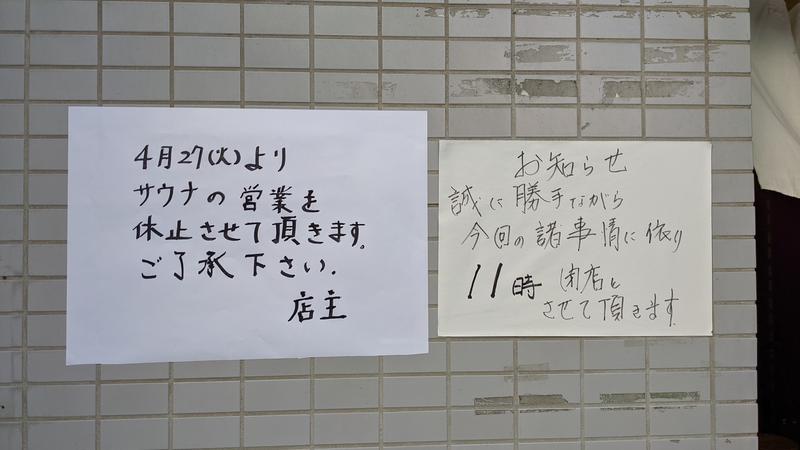 4月27(火)より
サウナの営業を
休止させて頂きます。
ご了承下さい.
店主
お知らせ
誠に勝手ながら
今回の諸事情に依り
11時 閉店と
させて頂きます